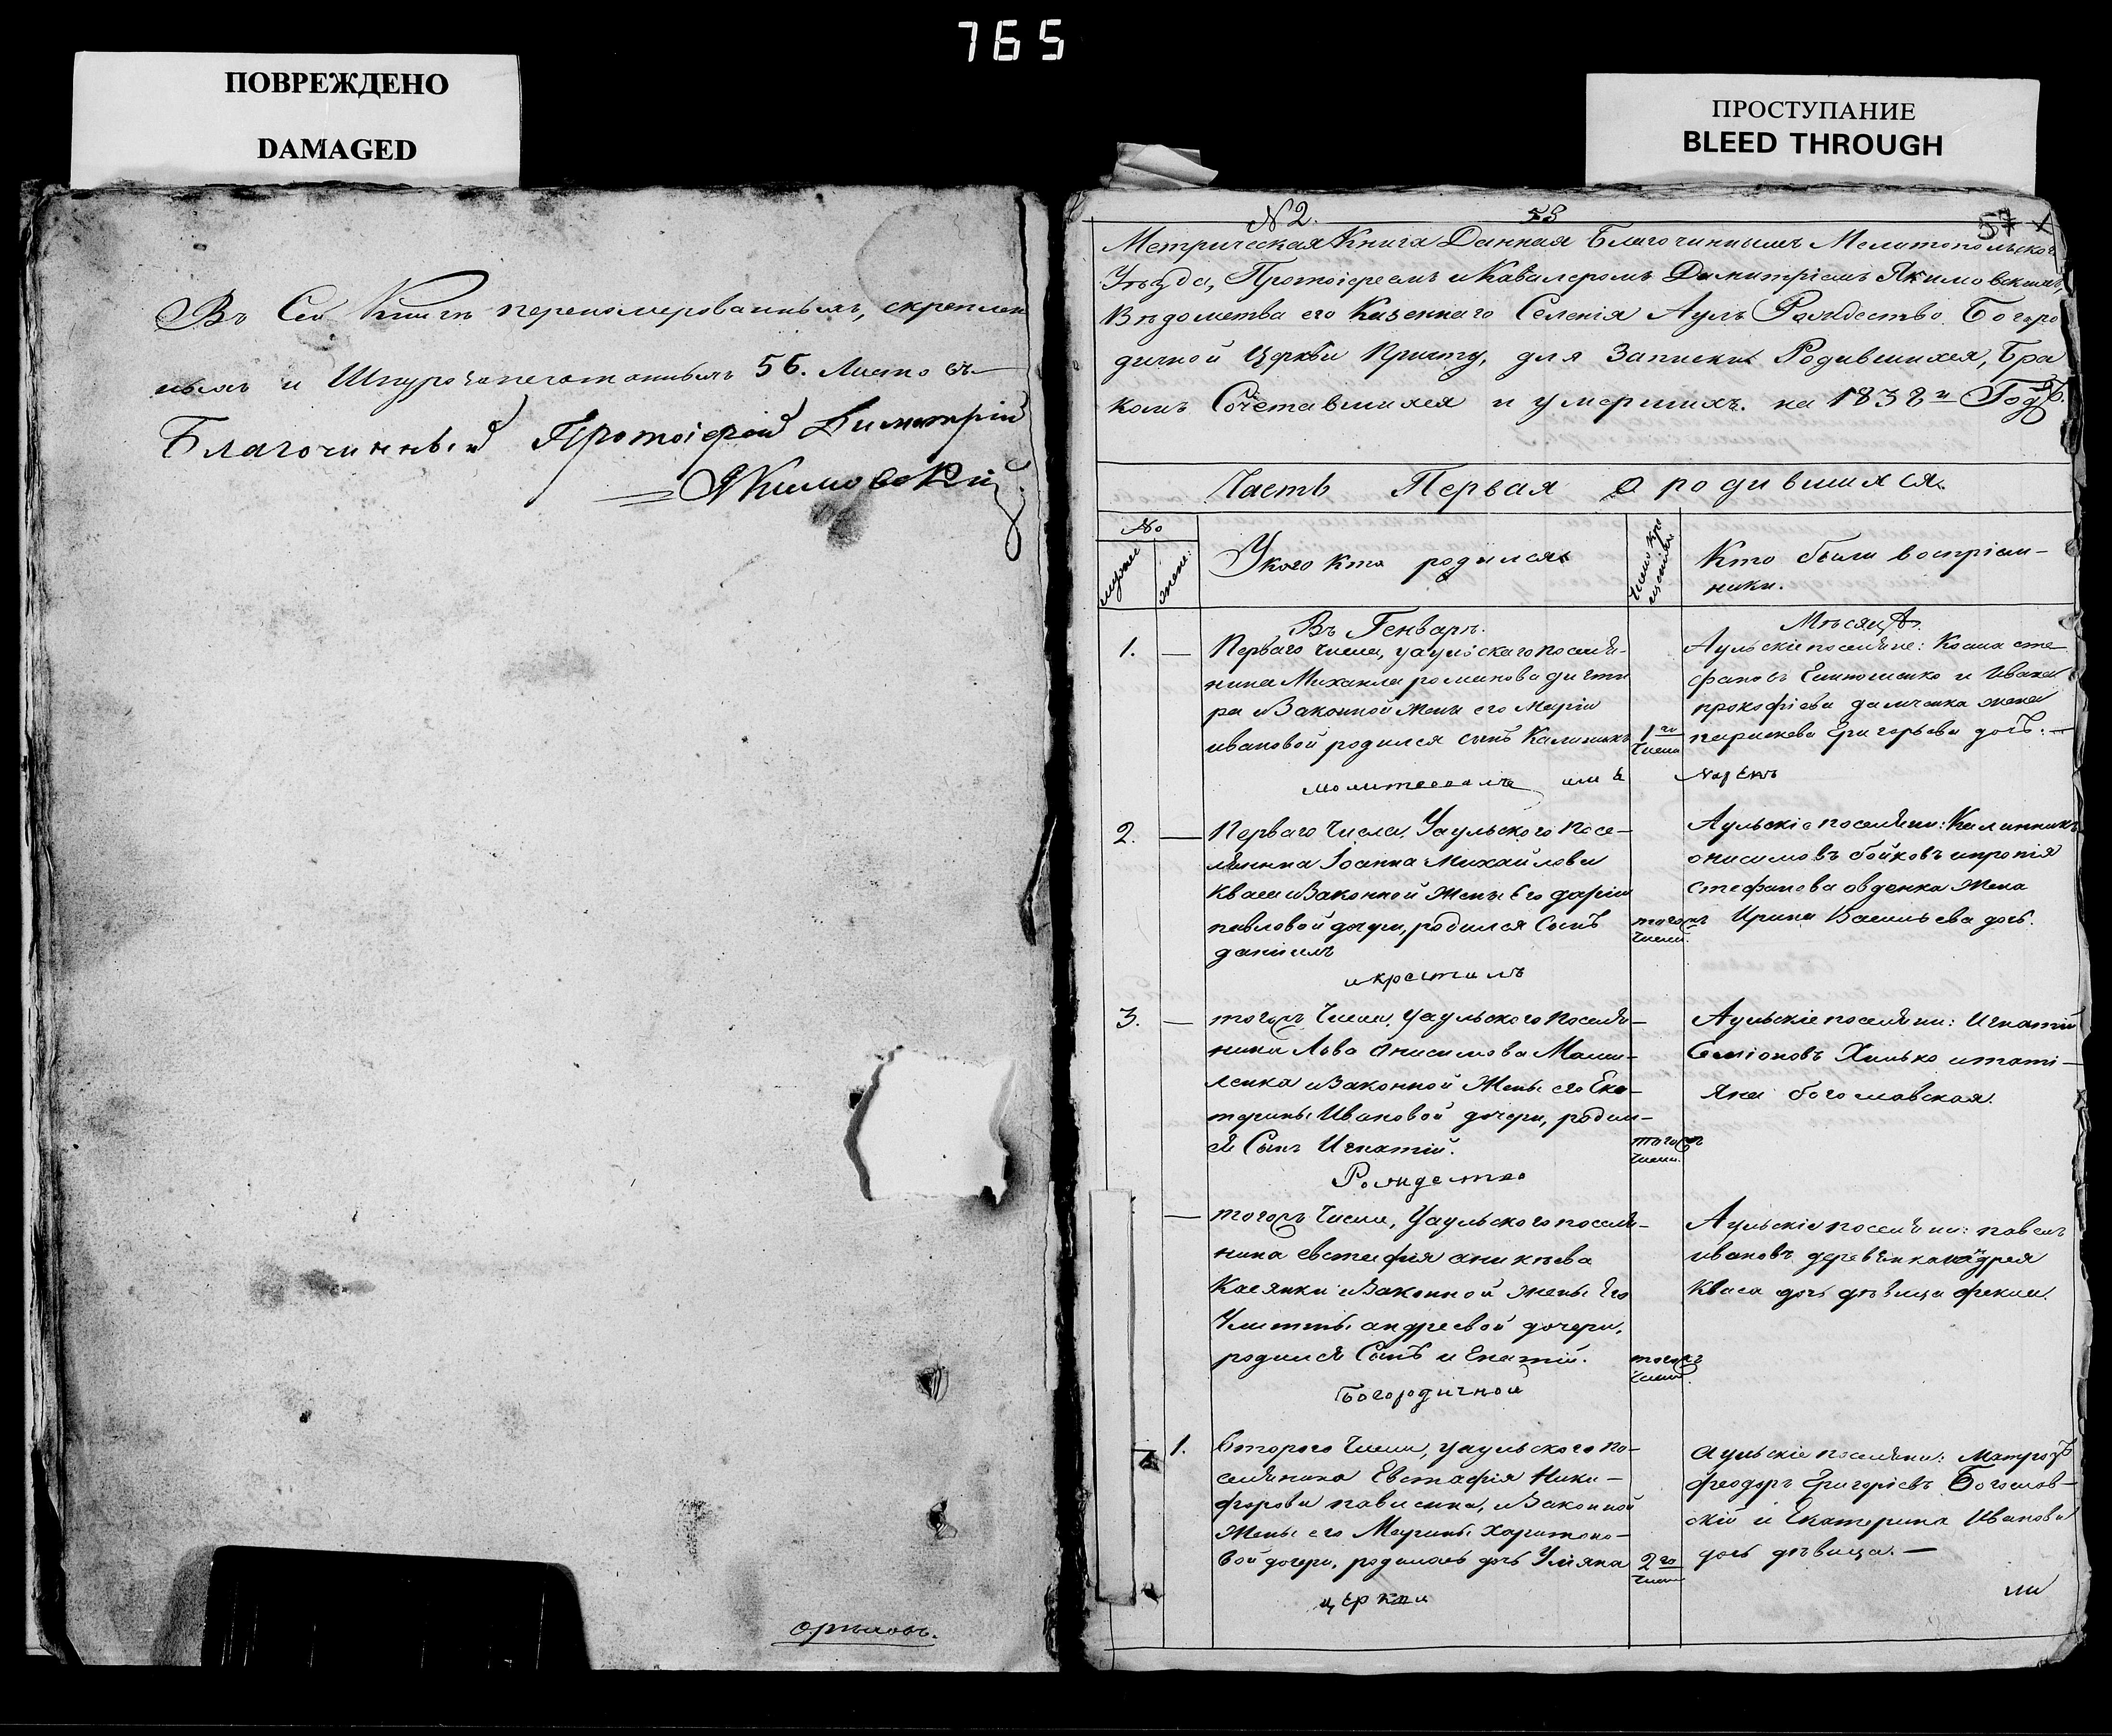 765
ПОВРЕЖДЕНО
DAMAGED
ПРОСТУПАНИЕ
BLEED THROUGH
Въ Сей Книгѣ переномерованныхъ, скреплен
ныхъ и Шнурозапечатанныхъ 56. Листовъ
Благочинный Протоіерей Димитрій
Якимовскій
N 2.
57
Метрическая Книга Данная Благочиннымъ Мелитопольскаго
Уѣзда, Протоіереемъ и Кавалеромъ Димитріемъ Якимовскимъ,
Вѣдомства его Казеннаго Селенія Аулъ Рождество Богоро
дичной Церкви Причту, для Записки Родившихся, Бра
комъ Сочетавшихся и умершихъ. на 1838й Годъ.
Часть Первая о родившихся.
No
муже
жене:
У кого кто родился
Число кре
щенія
Кто были воспріем-
ники.
Въ Генварѣ.
Мѣсяцѣ.
1. — Перваго числа, у аульскаго поселя-
нина Михаила романова дигти
ра и Законной жены его Маріи
ивановой родился сынъ Калиникъ
1го
числа
Аульскіе поселяне: Козма сте
фановъ и Ивана
прокофіева жена
параскева Григорьева дочь. —
молитвовалъ имя нарекъ
2. — Перваго Числа, У аульского посе-
лянина Іоанна Михайлова
Кваши и Законной Жены Его даріи
павловой дочери, родился Сынъ
даніилъ
тогожъ
числа.
Аульскіе поселяни: Калинникъ
онисимовъ бойковъ и
стефанова овденка Жена
Ирина Васильева дочь.
и крестилъ
3. — тогожъ Числа, У аульского поселя-
нина Льва Онисимова
и Законной Жены его Ека-
терины Ивановой дочери, родил-
ся Сынъ Игнатій.
тогожъ
числа.
Аульскіе поселяни: Игнатій
Семіоновъ Хилько и тати-
яна богословская.
Рождество
— тогожъ Числа, У аульского поселя-
нина евстафия аникѣева
Касянки и Законной жены Его
Улиты андреевой дочери,
родился Сынъ Игнатій.
тогожъ
числа
Аульскіе поселяни: павелъ
ивановъ деревянка и андрея
Кваса дочь дѣвица фекла.
Богородичной
1. Второго Числа, у аульского по-
селянина Евстафія Ники-
форова павленка, и Законной
Жены его Марины харитоно-
вой дочери, родилась дочь Уліяна
2го
числа
аульскіе поселяни: Матрозъ
феодоръ Григоріевъ Богослов-
скій и Екатерина Иванова
дочь дѣвица. —
церкви